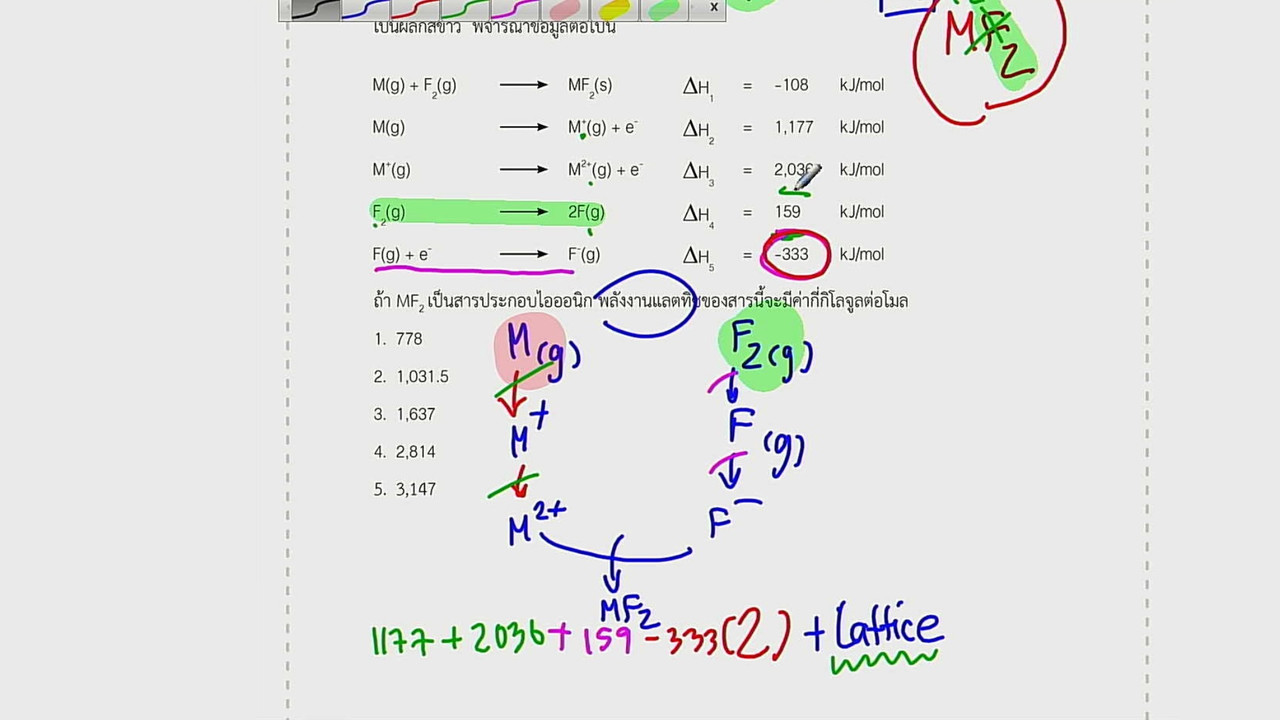 x
เป็นผลึกสีขาว พิจารณาข้อมูลต่อไปนี้
MF2
M(g) + F2(g) → MF2(s) ΔH1 = -108 kJ/mol
M(g) → M+(g) + e- ΔH2 = 1,177 kJ/mol
M+(g) → M2+(g) + e- ΔH3 = 2,036 kJ/mol
F2(g) → 2F(g) ΔH4 = 159 kJ/mol
F(g) + e- → F-(g) ΔH5 = -333 kJ/mol
ถ้า MF2 เป็นสารประกอบไอออนิก พลังงานแลตทิซของสารนี้จะมีค่ากี่กิโลจูลต่อโมล
1. 778
2. 1,031.5
3. 1,637
4. 2,814
5. 3,147
M(g) F2(g)
M+ F(g)
M2+ F-
MF2
1177 + 2036 + 159 - 333(2) + Lattice